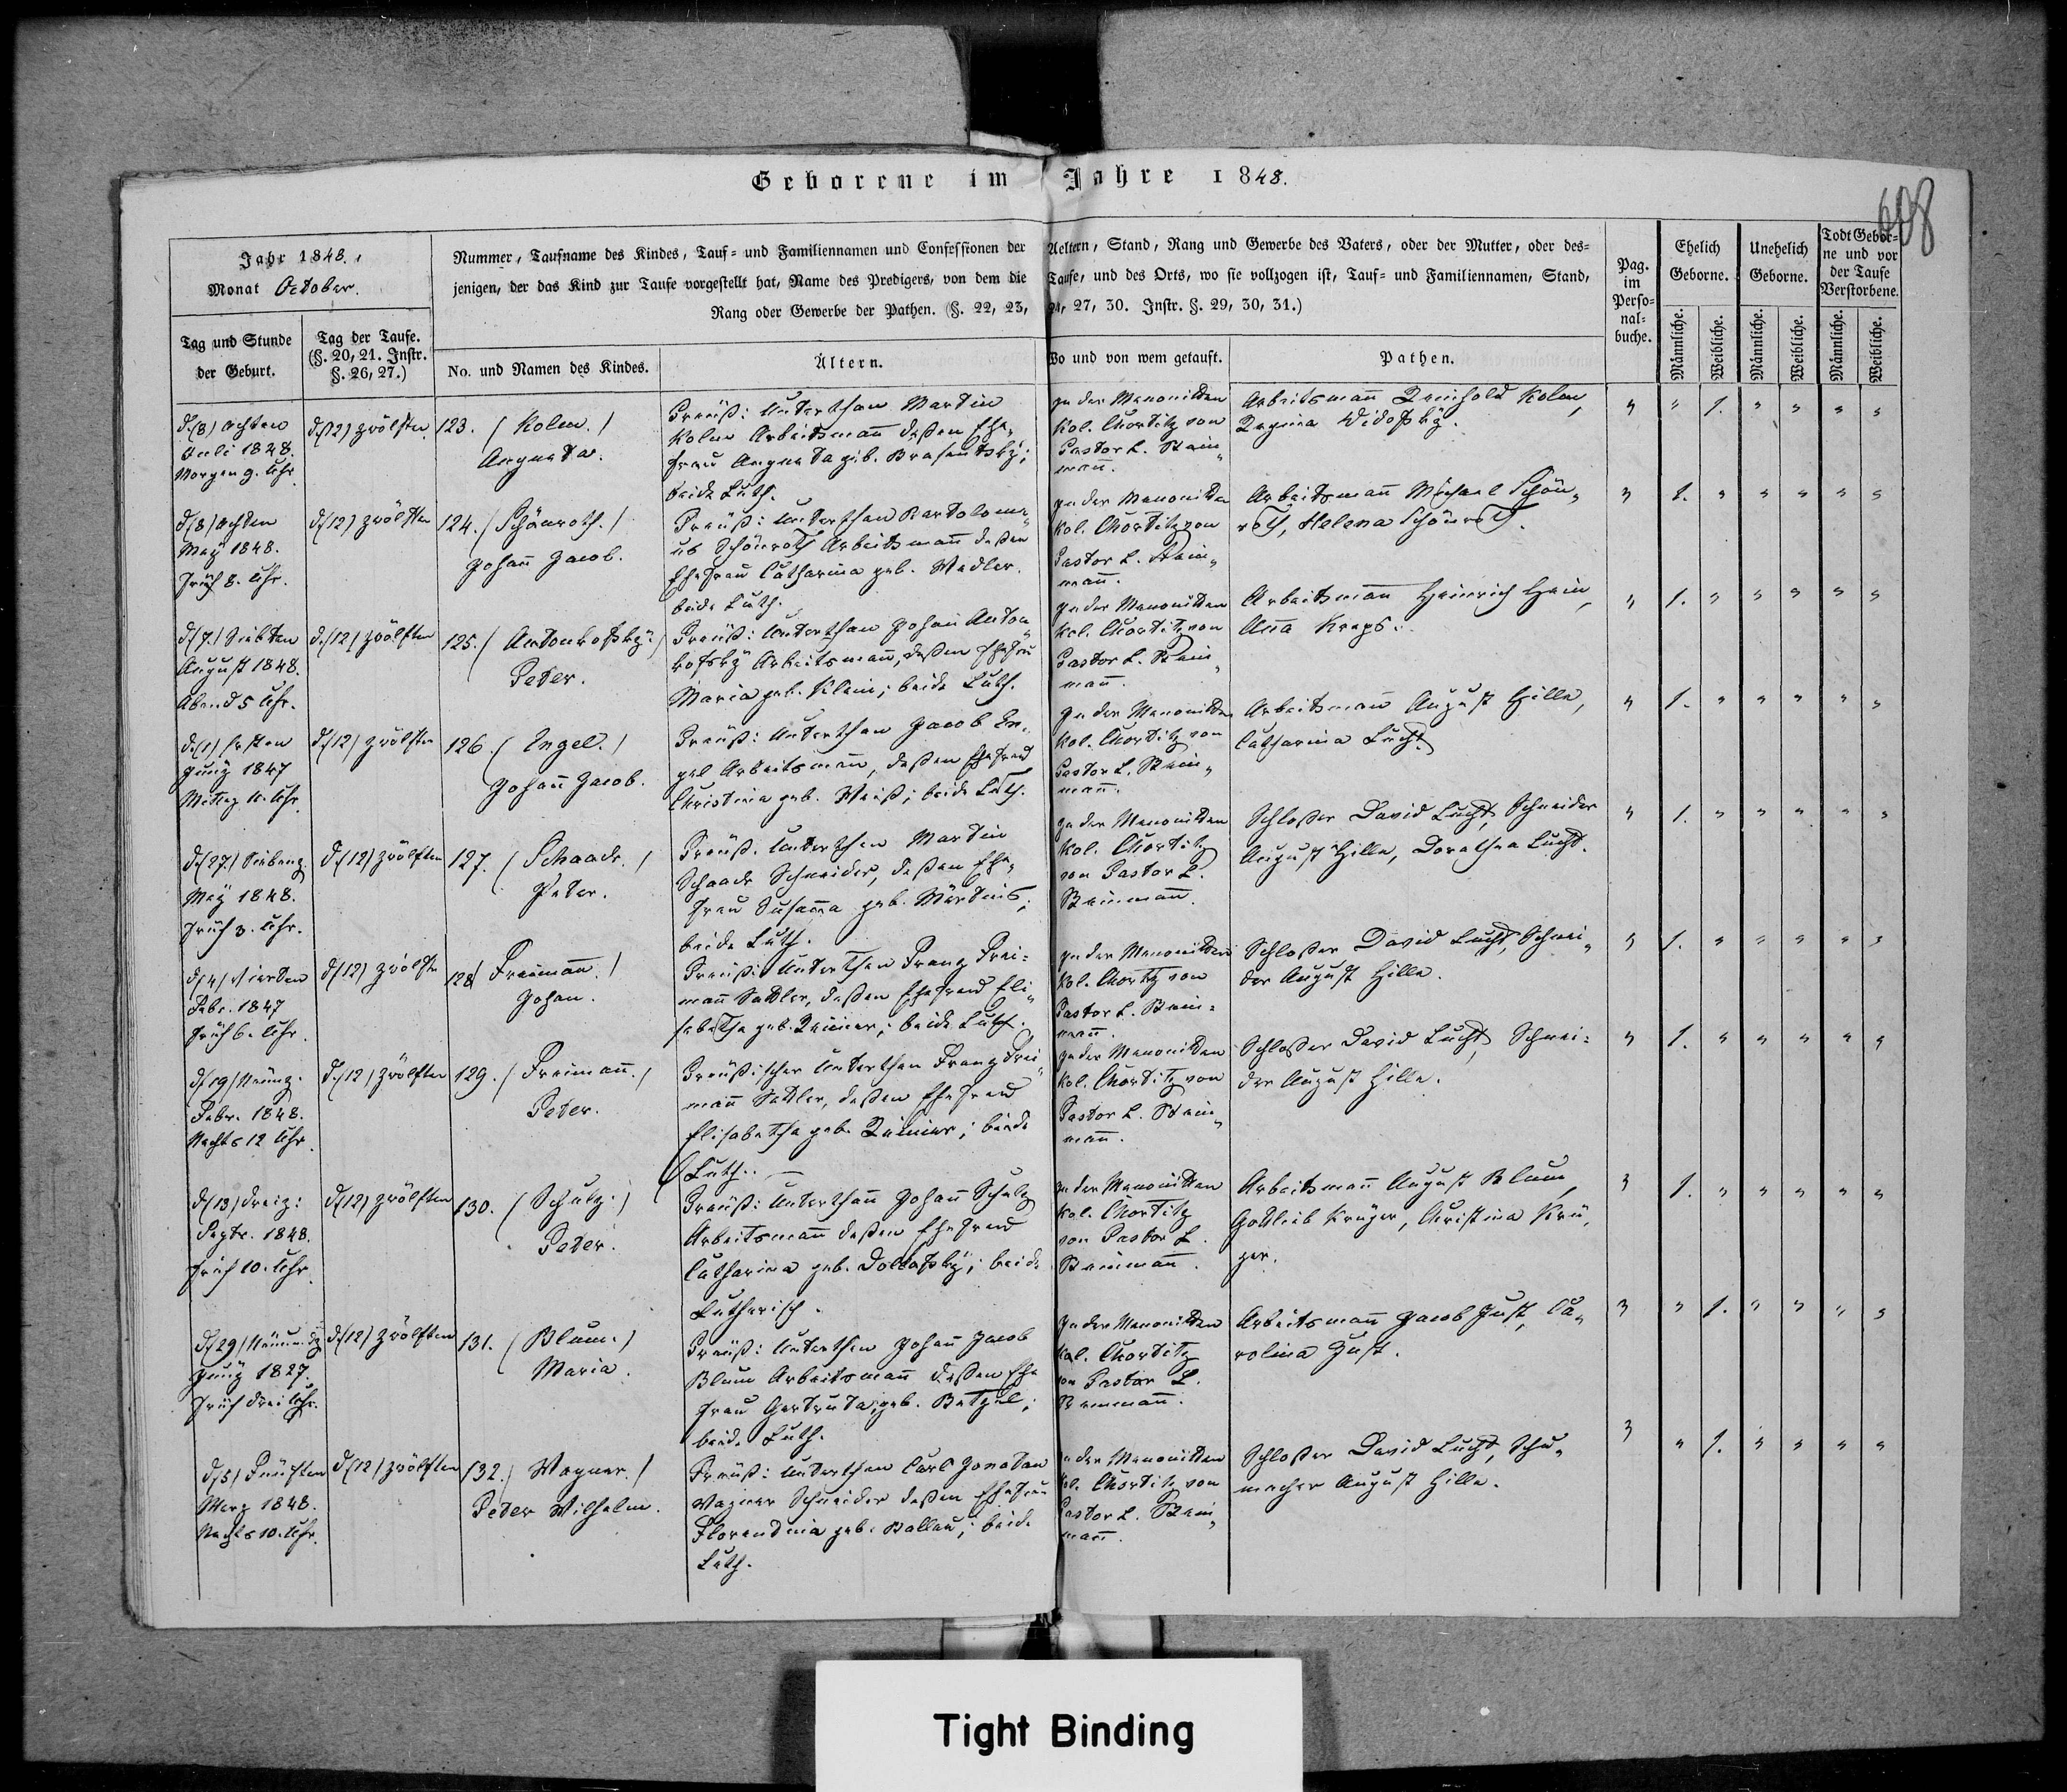 Geborene im Jahre 1848.
608
Jahr 1848.
Monat October.
Nummer, Taufname des Kindes, Tauf- und Familiennamen und Confessionen der Aeltern, Stand, Rang und Gewerbe des Vaters, oder der Mutter, oder des-
jenigen, der das Kind zur Taufe vorgestellt hat, Name des Predigers, von dem die Taufe, und des Orts, wo sie vollzogen ist, Tauf- und Familiennamen, Stand,
Rang oder Gewerbe der Pathen. (§. 22, 23, 24, 27, 30. Instr. §. 29, 30, 31.)
Pag. im Perso- nal- buche.
Ehelich Geborne.
Unehelich Geborne.
Todt Gebor- ne und vor der Taufe Verstorbene.
Tag und Stunde der Geburt.
Tag der Taufe. (§. 20, 21. Instr. §. 26, 27.)
No. und Namen des Kindes.
Ältern.
Wo und von wem getauft.
Pathen.
Männliche. Weibliche. Männliche. Weibliche. Männliche. Weibliche.
d. (8) achten
Juli 1848.
Morgen 9. Uhr.
d. (12) zwölften
123. (Kolm.)
Augusta.
Preuß: Unterthan Martin
Kolm Arbeitsmañ deßen Ehe-
frau Augusta geb.
beide Luth.
In der Menoniten
Kol. Chortitz von
Pastor L. Stein-
mañ.
Arbeitsmañ Reinhold Kolm,
Regina
" " 1. " " " "
d. (8) achten
May 1848.
Früh 8. Uhr.
d. (12) zwölften
124. (Schönroth.)
Johañ Jacob.
Preuß: Unterthan Bartolome-
us Schönroth Arbeitsmañ deßen
Ehefrau Catharina geb. Wedler.
beide Luth.
In der Menoniten
Kol. Chortitz von
Pastor L. Stein-
mañ.
Arbeitsmañ Michael Schön-
roth, Helena Schönroth.
" 1. " " " " "
d. (7.) Siebten
August 1848.
Abend 5 Uhr.
d. (12) zwölften
125. (Antonkofsky.)
Peter.
Preuß: Unterthan Johañ Anton-
kofsky Arbeitsmañ, deßen Ehefrau
Maria geb. Klein; beide Luth.
In der Menoniten
Kol. Chortitz von
Pastor L. Stein-
mañ.
Arbeitsmañ Heinrich Hein,
Aña Kreps.
" 1. " " " " "
d. (1) Ersten
Juny 1847
Mittag 11. Uhr.
d. (12) zwölften
126. (Engel.)
Johañ Jacob.
Preuß: Unterthan Jacob En-
gel Arbeitsmañ, deßen Ehefrau
Christina geb. Weiß; beide Luth.
In der Menoniten
Kol. Chortitz von
Pastor L. Stein-
mañ.
Arbeitsmañ August Hille,
Catharina Lucht.
" 1. " " " " "
d. (27) Siebenz
May 1848.
Früh 3. Uhr.
d. (12) zwölften
127. (Schaade.)
Peter.
Preuß. Unterthan Martin
Schaade Schneider, deßen Ehe-
frau Susaña geb. Märtens;
beide Luth.
In der Menoniten
Kol. Chortitz
von Pastor L.
Steinmañ.
Schloßer David Lucht, Schneider
August Hille, Dorothea Lucht.
" 1. " " " " "
d. (4) Vierten
Febr. 1847
Früh 6. Uhr.
d. (12) zwölfte
128. (Freimañ.)
Johan.
Preuß: Unterthan Franz Frei-
mañ Sattler, deßen Ehefrau Eli-
sabetha geb. Reimer; beide Luth.
In der Menoniten
Kol. Chortz von
Pastor L. Stein-
mañ.
Schloßer David Lucht, Schnei-
der August Hille.
" 1. " " " " "
d. (19) Neunz.
Febr. 1848.
Nachts 12 Uhr.
d. (12) zwölften
129. (Freimañ.)
Peter.
Preußischer Unterthan Franz Frei-
mañ Sattler, deßen Ehefrau
Elisabetha geb. Reimer; beide
Luth. —
In der Menoniten
Kol. Chortitz von
Pastor L. Stein-
mañ.
Schloßer David Lucht, Schnei-
der August Hille.
" 1. " " " " "
d. (13) dreiz:
Septr. 1848.
Früh 10. Uhr.
d. (12) zwölften
130. (Schulz.)
Peter.
Preuß: Unterthañ Johañ Schulz
Arbeitsmañ deßen Ehefrau
Catharina geb. beide
Lutherisch.
In der Menoniten
Kol. Chortitz
von Pastor L.
Steinmañ.
Arbeitsmañ August Blum,
Gottlieb Krüger, Christina Krü-
ger.
" 1. " " " " "
d. (29)
Juny 1827.
Früh drei Uhr.
d. (12) zwölften
131. (Blum.)
Maria.
Preuß: Unterthan Johañ Jacob
Blum Arbeitsmañ deßen Ehe
frau Gertruda geb. Betzel;
beide Luth.
In der Menoniten
Kol. Chortitz
von Pastor L.
Steinmañ.
Arbeitsmañ Jacob Just, Ca-
rolina Just.
" " 1. " " " "
d. (5) Fünften
Merz 1848.
Nachts 10. Uhr.
d. (12) zwölften
132. (Wagner.)
Peter Wilhelm.
Preuß: Unterthan Carl Jonatan
Wagner Schneider deßen Ehefrau
Florentina geb. Ballau; beide
Luth.
In der Menoniten
Kol. Chortitz von
Pastor L. Stein-
mañ.
Schloßer David Lucht, Schu-
macher August Hille.
" " 1. " " " "
Tight Binding